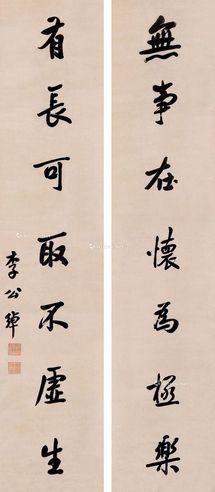 無事在懷為極樂
有長可取不虛生
李公綽